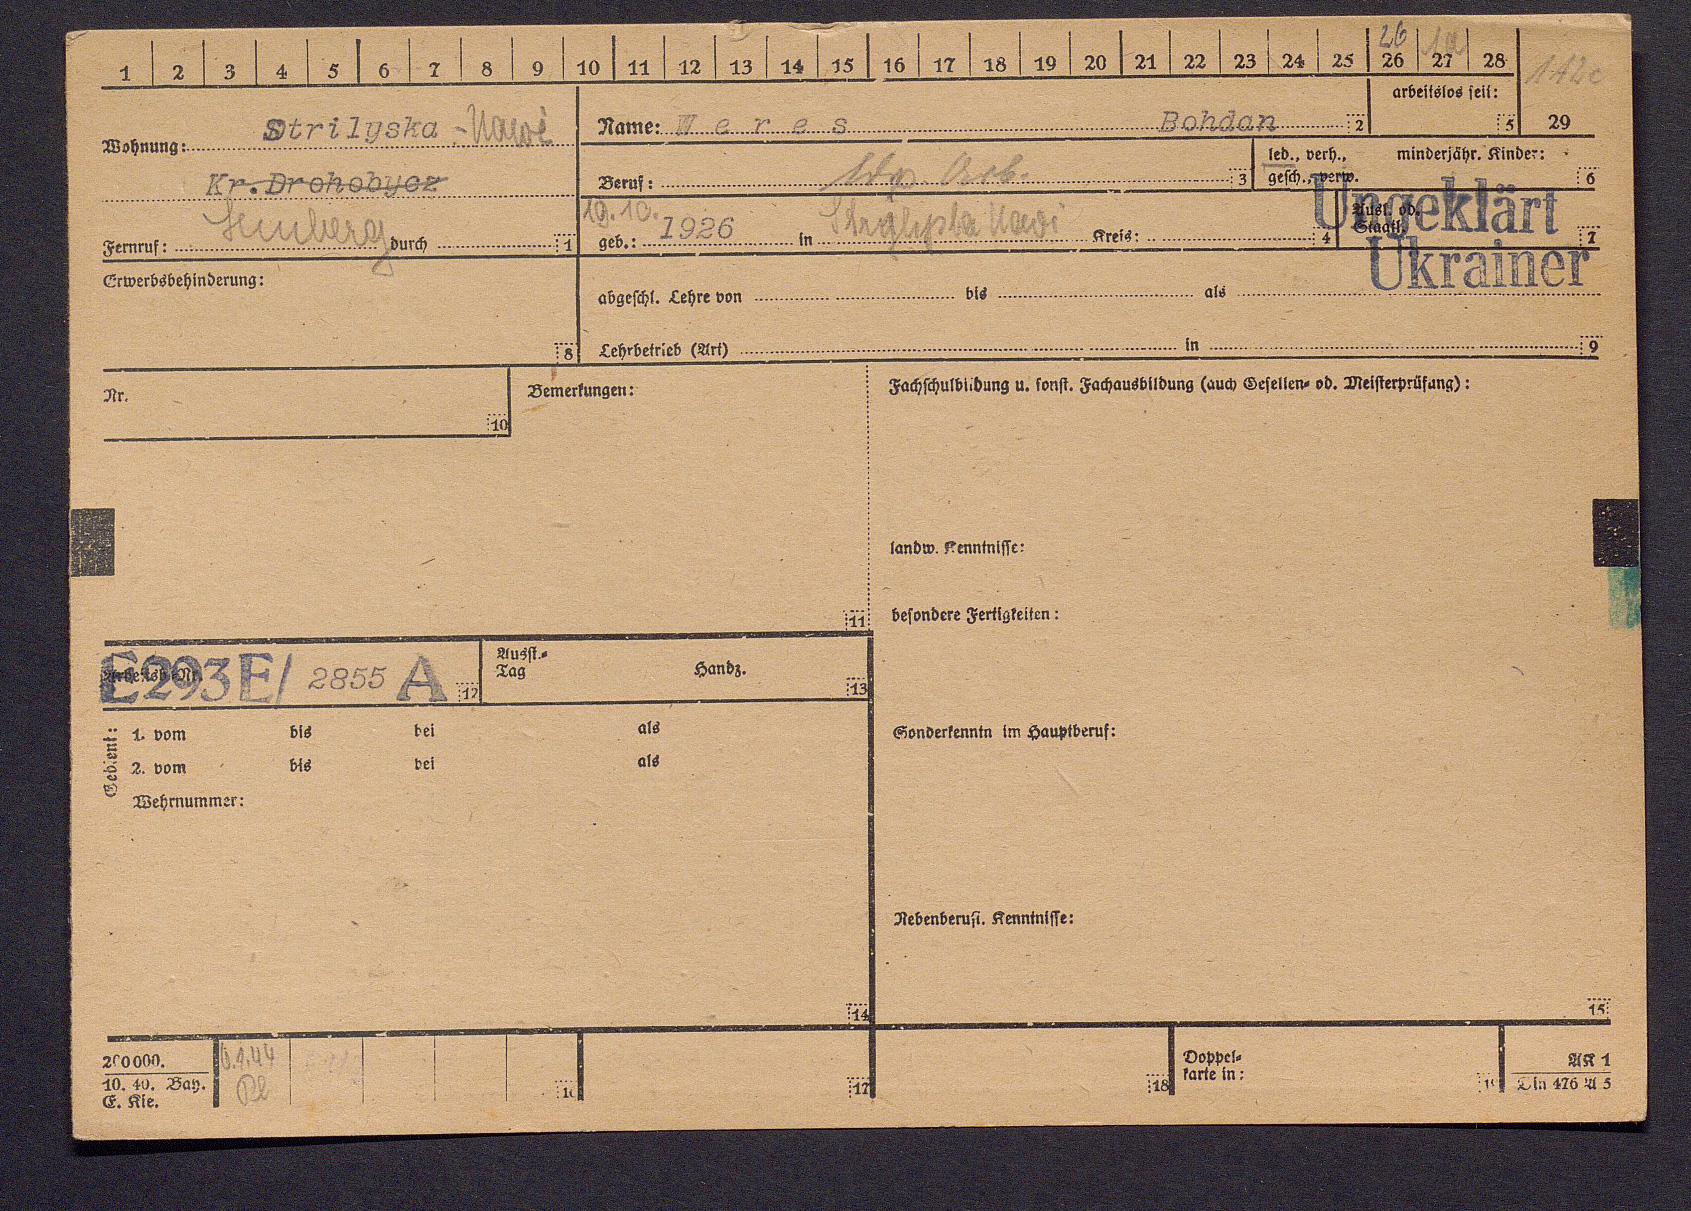 26 1a
1 2 3 4 5 6 7 8 9 10 11 12 13 14 15 16 17 18 19 20 21 22 23 24 25 26 27 28 142c
arbeitslos seit:
5 29
Wohnung: Strilyska - Nowi
Kr. Drohobycz
Lemberg
Fernruf: durch 1
Name: W e r e s Bohdan 2
Beruf: ldw. Arb. 3
led., verh., minderjähr. Kinder:
gesch., verw. 6
19.10.
geb.: 1926 in Kreis: 4
Ausl. od.
Staatl. 7
Ungeklärt
Ukrainer
Erwerbsbehinderung:
8
abgeschl. Lehre von bis als
Lehrbetrieb (Art) in 9
Nr.
10
Bemerkungen:
11
Fachschulbildung u. sonst. Fachausbildung (auch Gesellen- od. Meisterprüfung):
landw. Kenntnisse:
besondere Fertigkeiten:
Arbeitsb.-Nr.
E293E/ 2855 A 12
Ausst.-
Tag Handz.
13
Gedient:
1. vom bis bei als
2. vom bis bei als
Wehrnummer:
14
Sonderkenntn im Hauptberuf:
Nebenberufl. Kenntnisse:
15
200000.
10. 40. Bay.
E. Kie.
16
17
18
Doppel-
karte in:
19
AK 1
Din 476 A 5